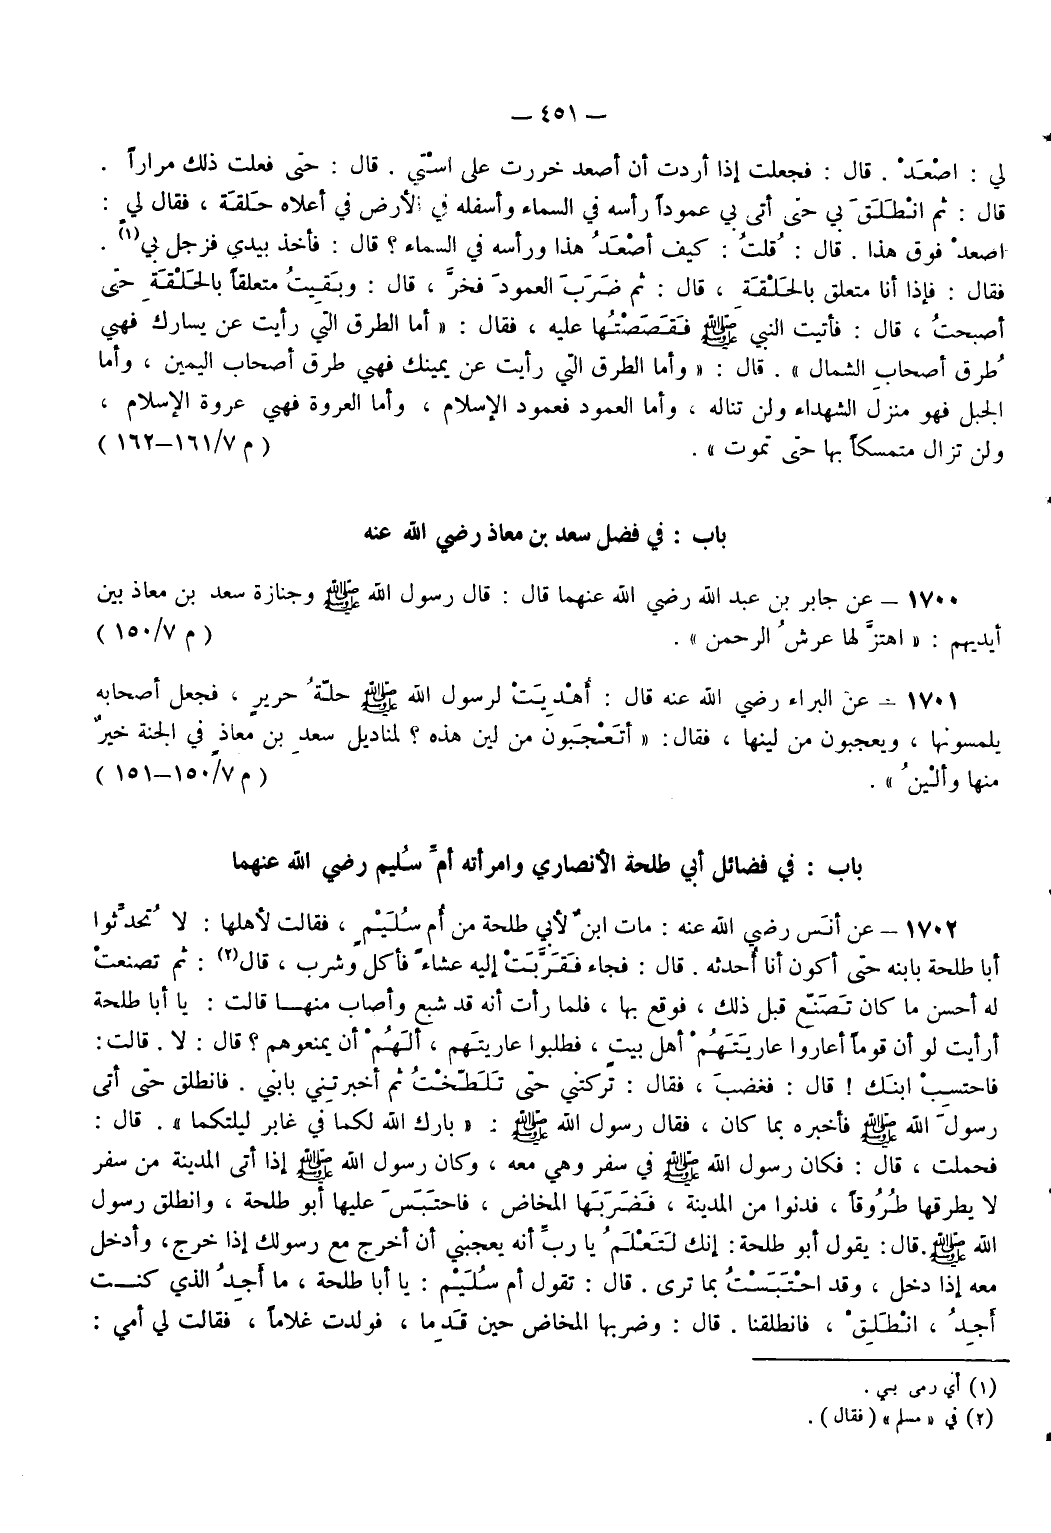 — ٤٥١ —
لي : اصْعَدْ . قال : فجعلت إذا أردت أن أصعد خررت على اسْتي . قال : حتى فعلت ذلك مراراً .
قال : ثم انْطَلَقَ بي حتى أتى بي عموداً رأسه في السماء وأسفله في الأرض في أعلاه حَلقَة ، فقال لي :
اصعدْ فوق هذا . قال : قُلتُ : كيف أصْعَدُ هذا ورأسه في السماء ؟ قال : فأخذ بيدي فزجل بي(١) .
فقال : فإذا أنا متعلق بالحَلْقَةِ ، قال : ثم ضَرَبَ العمودَ فخرَّ ، قال : وبَقِيتُ متعلقاً بالحَلْقَةِ حتى
أصبحتُ ، قال : فأتيت النبي ﷺ فقَصَصْتُها عليه ، فقال : « أما الطرق التي رأيت عن يسارك فهي
طُرق أصحاب الشمال » . قال : « وأما الطرق التي رأيت عن يمينك فهي طرق أصحاب اليمين ، وأما
الجبل فهو منزل الشهداء ولن تناله ، وأما العمود فعمود الإسلام ، وأما العروة فهي عروة الإسلام ،
ولن تزال متمسكاً بها حتى تموت » . ( م ٧/١٦١–١٦٢ )
باب : في فضل سعد بن معاذ رضي الله عنه
١٧٠٠ – عن جابر بن عبد الله رضي الله عنهما قال : قال رسول الله ﷺ وجنازة سعد بن معاذ بين
أيديهم : « اهتزَّ لها عرشُ الرحمن » . ( م ٧/١٥٠ )
١٧٠١ – عن البراء رضي الله عنه قال : أُهْدِيَتْ لرسول الله ﷺ حلّةُ حريرٍ ، فجعل أصحابه
يلمسونها ، ويعجبون من لينها ، فقال: « أتَعْجَبون من لين هذه ؟ لمناديل سعدِ بن معاذٍ في الجنة خيرٌ
منها وألْينُ » . ( م ٧/١٥٠–١٥١ )
باب : في فضائل أبي طلحة الأنصاري وامرأته أمِّ سُليم رضي الله عنهما
١٧٠٢ – عن أنَس رضي الله عنه : مات ابنٌ لأبي طلحة من أُم سُلَيْمٍ ، فقالت لأهلها : لا تُحدِّثوا
أبا طلحة بابنه حتى أكون أنا أُحدثه . قال : فجاء فَقَرَّبَتْ إليه عشاءً فأكل وشرب ، قال(٢) : ثم تصنعتْ
له أحسن ما كان تَصَنَّع قبل ذلك ، فوقع بها ، فلما رأت أنه قد شبع وأصاب منهـا قالت : يا أبا طلحة
أرأيت لو أن قوماً أعاروا عاريَتَهُمْ أهل بيتٍ ، فطلبوا عاريتَهم ، ألَهُمْ أن يمنعوهم ؟ قال : لا . قالت:
فاحتسِبْ ابنَك ! قال : فغضبَ ، فقال : تركتني حتى تَلَطَّخْتُ ثم أخبرتِني بابني . فانطلق حتى أتى
رسولَ الله ﷺ فأخبره بما كان ، فقال رسول الله ﷺ : « بارك الله لكما في غابر ليلتكما » . قال :
فحملت ، قال : فكان رسول الله ﷺ في سفر وهي معه ، وكان رسول الله ﷺ إذا أتى المدينة من سفر
لا يطرقها طُرُوقاً ، فدنوا من المدينة ، فضَرَبَها المخاض ، فاحتَبَسَ عليها أبو طلحة ، وانطلق رسول
الله ﷺ.قال: يقول أبو طلحة: إنك لتَعْلَمُ يا ربِّ أنه يعجبني أن أخرج مع رسولك إذا خرج، وأدخل
معه إذا دخل ، وقد احْتَبَسْتُ بما ترى . قال : تقول أم سُلَيْم : يا أبا طلحة ، ما أجدُ الذي كنـت
أجِدُ ، انْطَلِقْ ، فانطلقنا . قال : وضربها المخاض حين قَدِما ، فولدت غلاماً ، فقالت لي أمي :
(١) أي رمى بي .
(٢) في « مسلم » ( فقال ) .